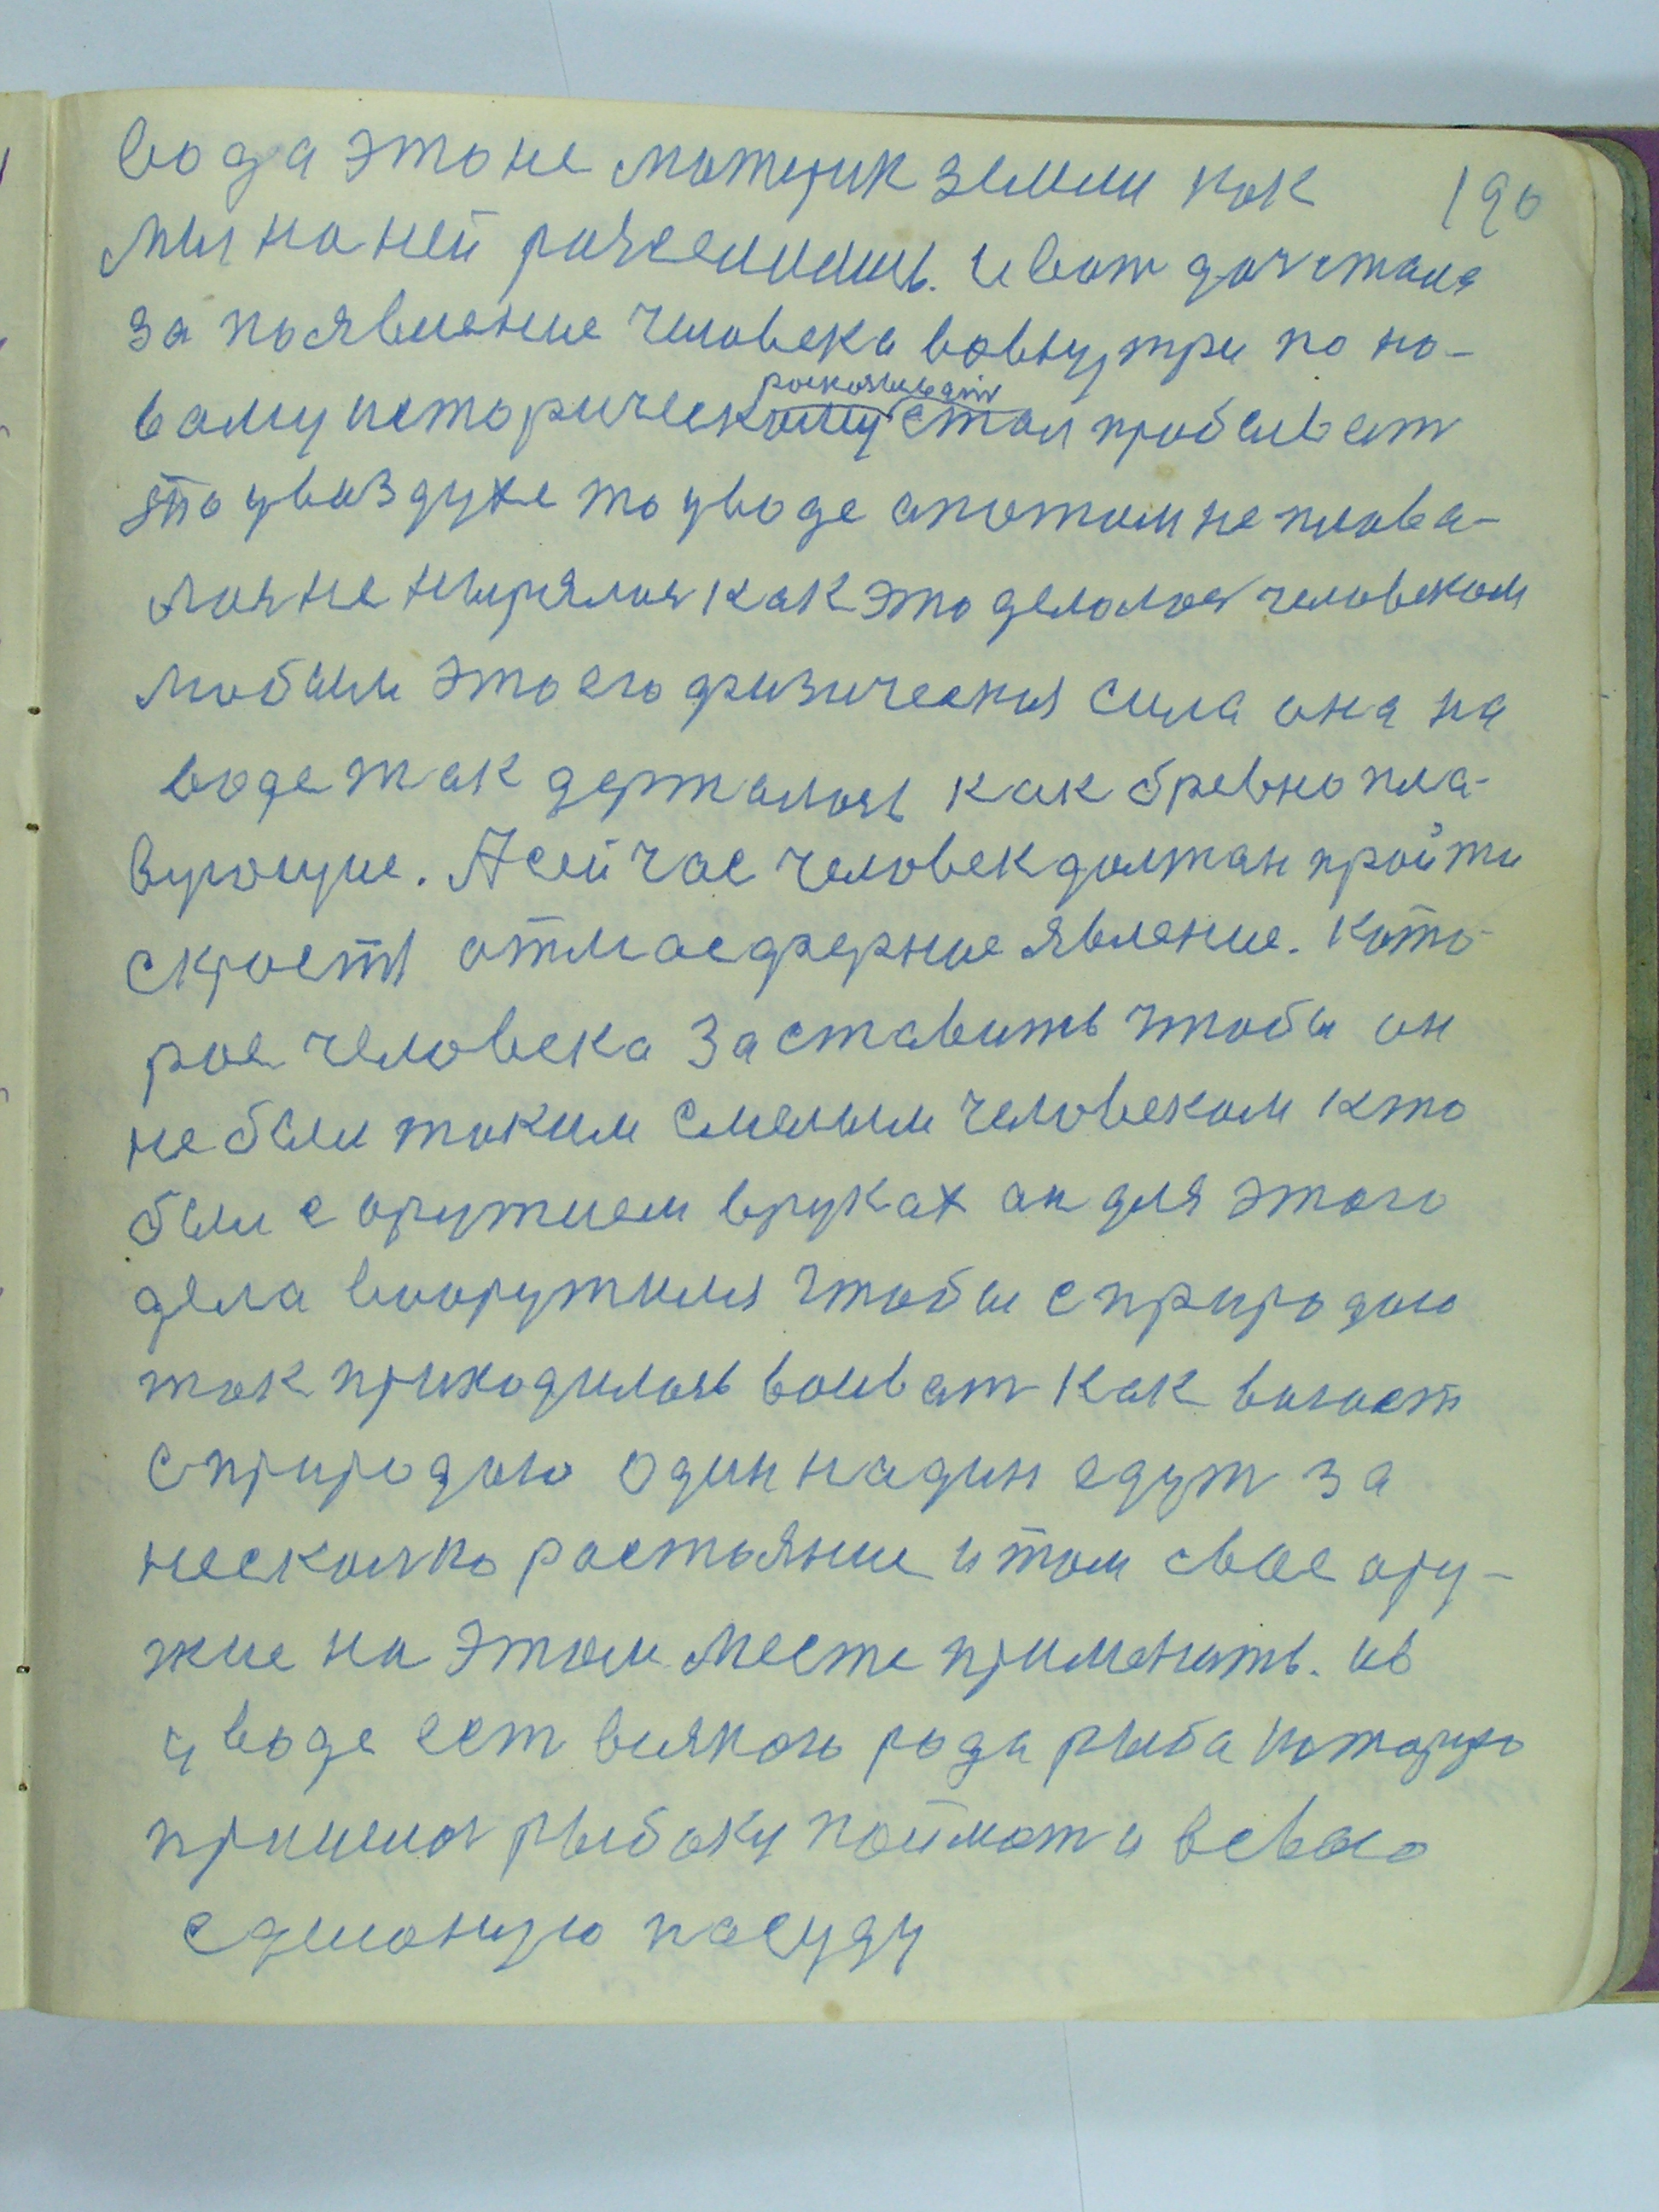 вода это не материк земли как 190
мы на ней расселились. И вот достаня
за появление человека вовнутри по но-
вому историческому стал пробыват
расказыват
то у воздухе то у воде апотом не плова-
лося не нырялося как это делолося человеком
любым это его физическия сила она на
воде так держалось как бревно пла-
вующие. А сейчас человек должан пройти
скрость отмасферные явление. Кото-
рое человека заставить чтобы он
не был таким смелым человеком кто
был с оружием вруках он для этого
дела вооружился чтобы сприродою
так приходилось воиват как воюют
сприродою один надин едут за
несколко растояние и том свое ору-
жие на этом месте применить. ив
у воде ест всякого рода рыба которую
пришлося рыбаку поймат и всвою
сделоную посуду